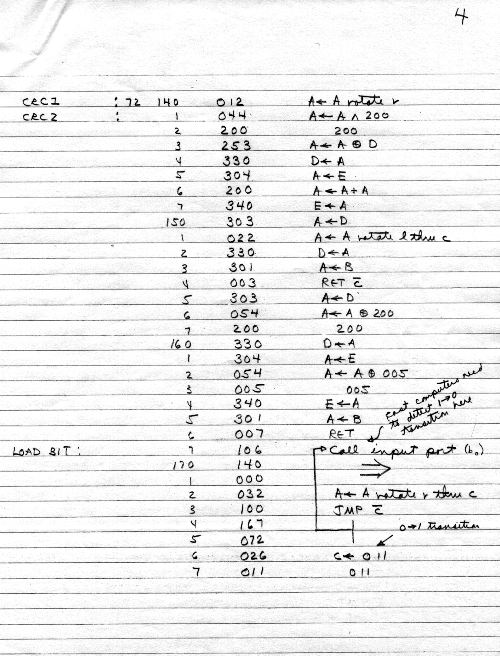 4
CRC1 : 72 140 012 A ← A rotate r
CRC2 : 1 044 A ← A ∧ 200
2 200 200
3 253 A ← A ⊕ D
4 330 D ← A
5 304 A ← E
6 200 A ← A + A
7 340 E ← A
150 303 A ← D
1 022 A ← A rotate l thru c
2 330 D ← A
3 301 A ← B
4 003 RET c̅
5 303 A ← D
6 054 A ← A ⊕ 200
7 200 200
160 330 D ← A
1 304 A ← E
2 054 A ← A ⊕ 005
3 005 005
4 340 E ← A
5 301 A ← B
6 007 RET
fast computers need
to detect 1→0
transition here
LOAD BIT : 7 106 Call input port (b₀)
170 140 ⇒
1 000
2 032 A ← A rotate r thru c
3 100 JMP c̅
4 167
5 072 0→1 transition
6 026 C ← 011
7 011 011